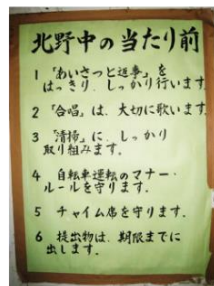 北野中の当たり前
1 「あいさつと返事」を
はっきり、しっかり行います
2 「合唱」は、大切に歌います。
3 「清掃」に、しっかり
取り組みます。
4 自転車運転のマナー・
ルールを守ります。
5 チャイム席を守ります。
6 提出物は、期限までに
出します。